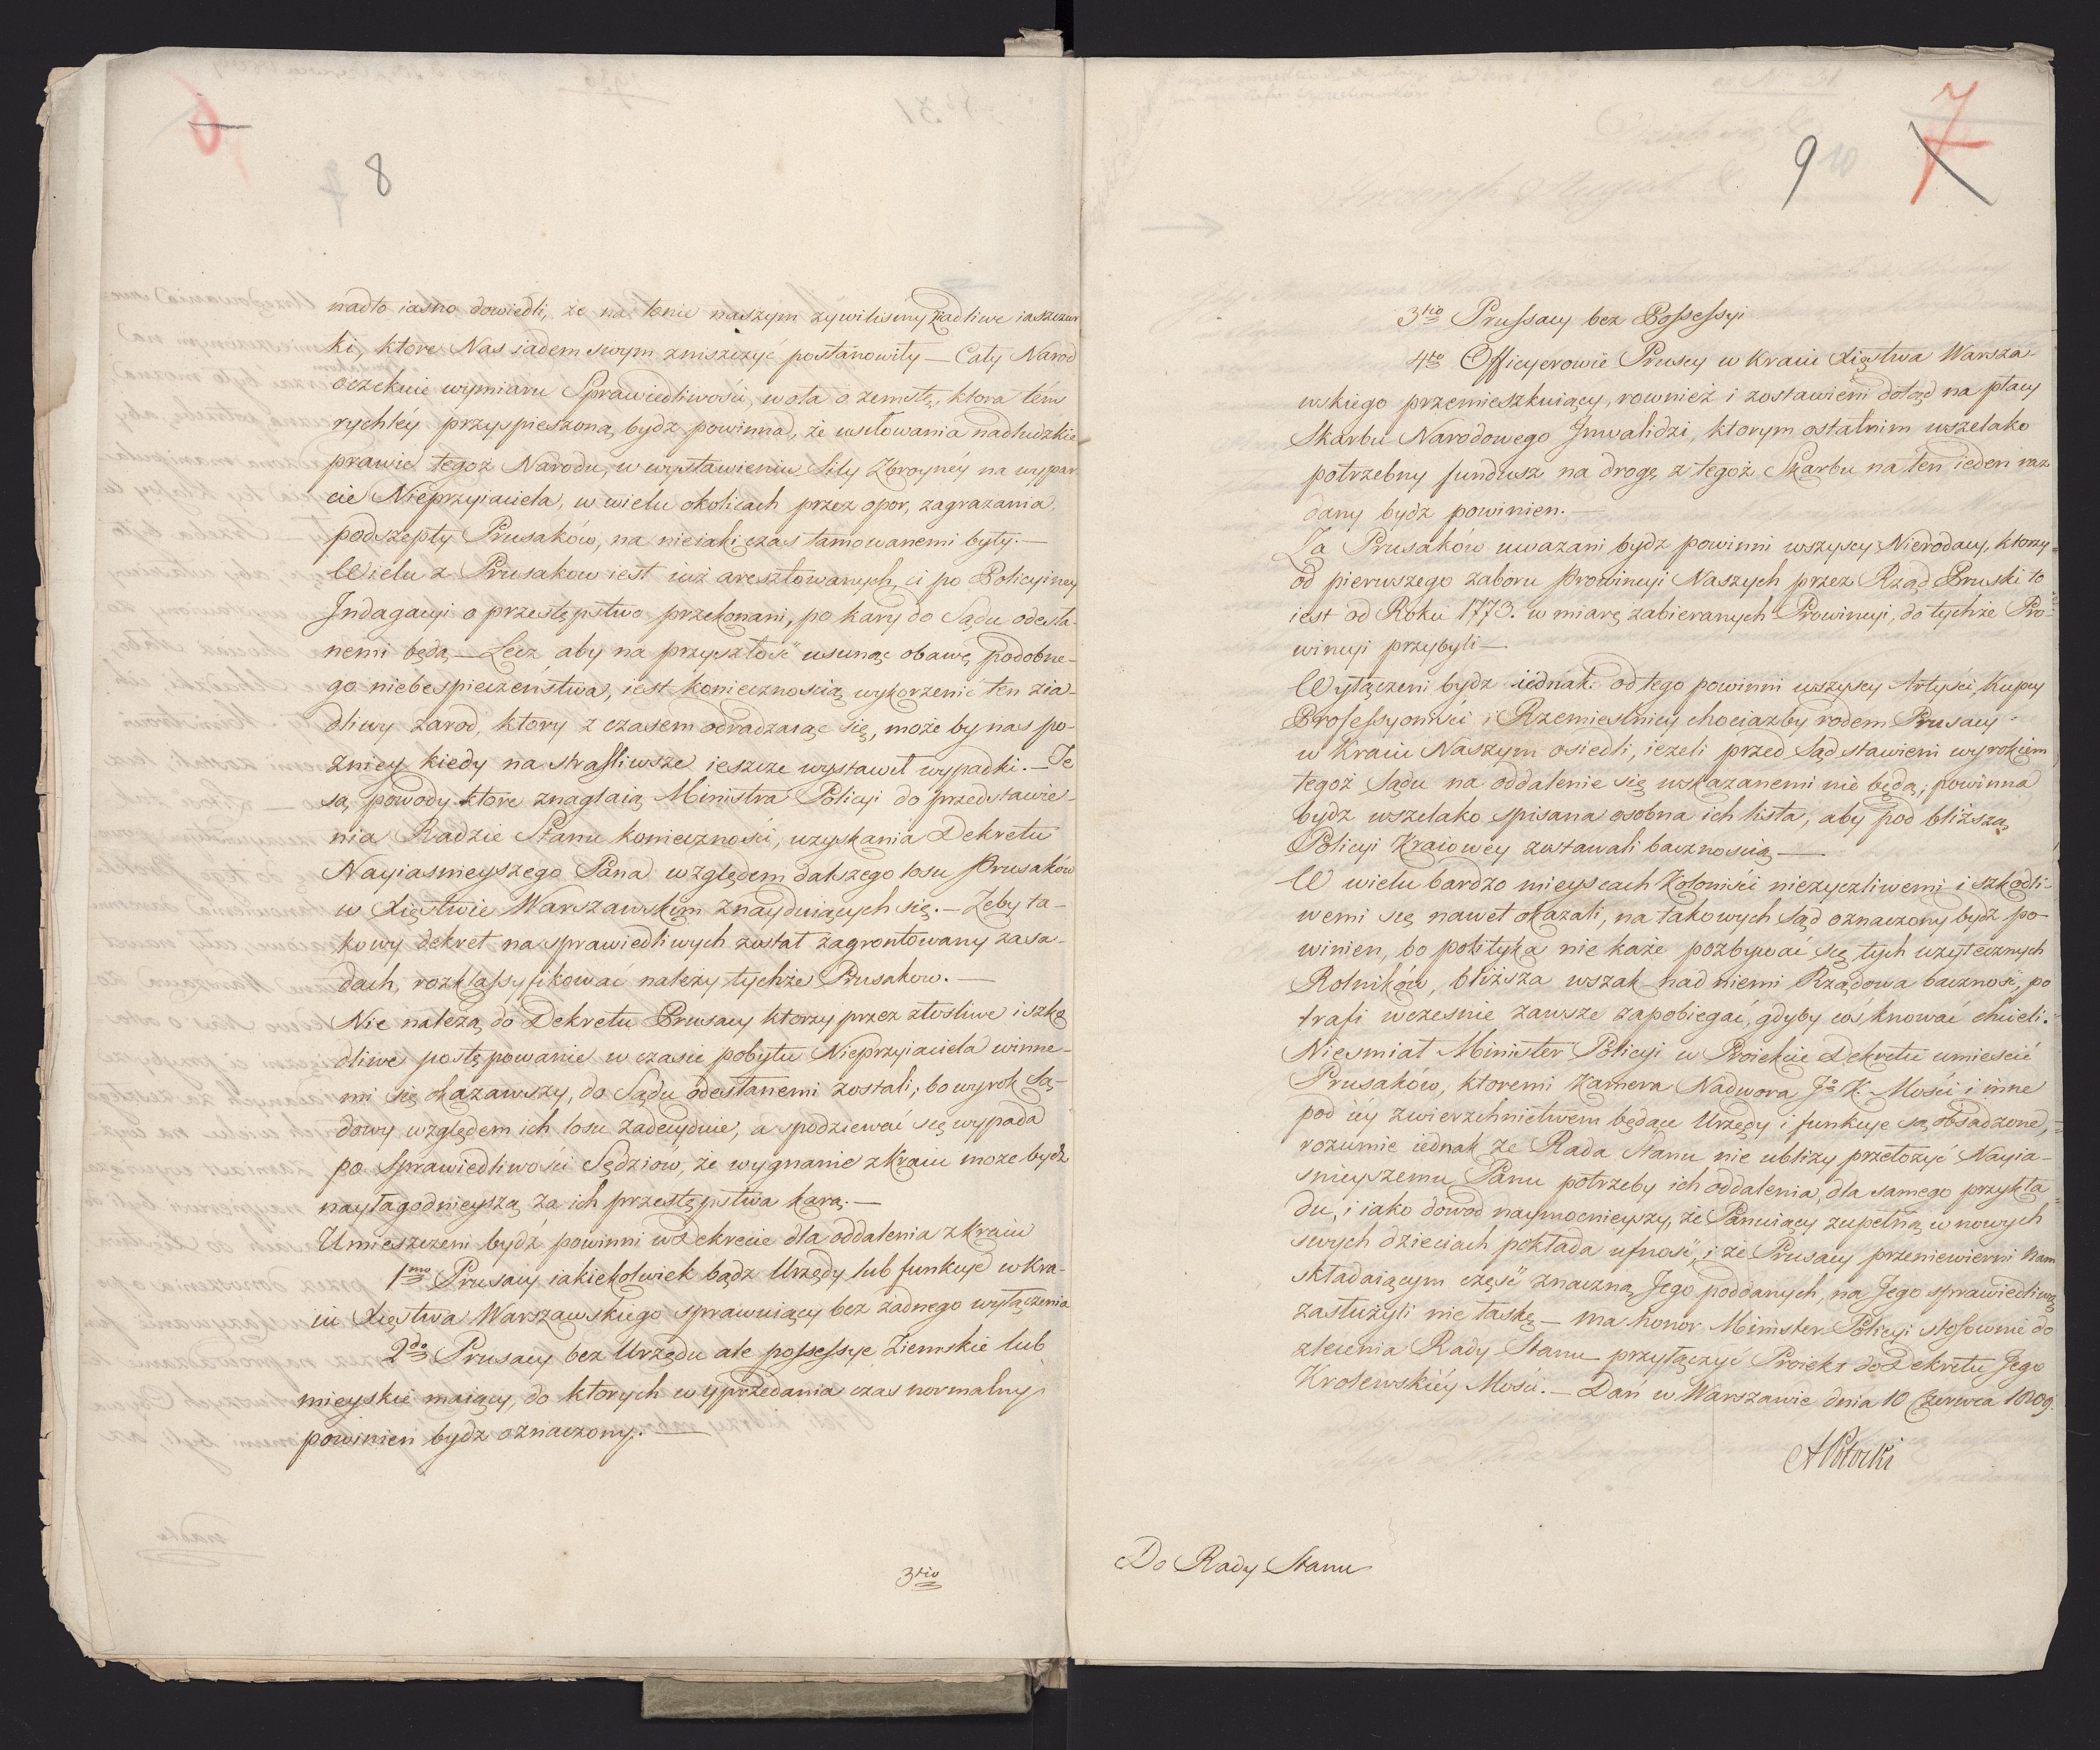 6
8
nadto iasno dowiedli, że na łonie naszym żywiliśmy zjadliwe iaszczur
ki, ktore Nas iadem swym zniszczyć postanowiły — Cały Narod
oczekuie wymiaru Sprawiedliwości, woła o zemstę, ktora tém
rychléy przyspieszoną bydz powinna, że usiłowania nadludzkie
prawie tegoż Narodu, w wystawieniu Siły Zbroynéy na wypar
cie Nieprzyiaciela, w wielu okolicach przez opor, zagrażania,
podszepty Prusaków, na nieiaki czas tamowanemi były. —
Wielu z Prusakow iest iuż aresztowanych, ci po Policyiney
Indagacyi o przestępstwo przekonani, po kary do Sądu odesła-
nemi będą — Lecz aby na przyszłość usunąc obawę podobne-
go niebespieczeństwa, iest koniecznością wykorzenić ten zia-
dliwy zarod, ktory z czasem odradzaiąc się, może by nas po-
zniey kiedy na strasliwsze ieszcze wystawił wypadki. — Te
są powody ktore znaglaią Ministra Policyi do przedstawie-
nia Radzie Stanu konieczności, uzyskania Dekretu
Nayiasnieyszego Pana względem dalszego losu Prusaków
w Xięstwie Warszawskim znayduiących się. — Żeby ta-
kowy dekret na sprawiedliwych został zagrontowany zasa-
dach, rozklassyfikować należy tychże Prusakow. —
Nie należą do Dekretu Prusacy ktorzy przez złośliwe i szko
dliwe postępowanie w czasie pobytu Nieprzyiaciela winne-
mi się okazawszy, do Sądu odesłanemi zostali; bo wyrok Są-
dowy względem ich losu zadecyduie, a spodziewać się wypada
po Sprawiedliwości Sędziów, że wygnanie z Kraiu może bydz
nayłagodnieyszą za ich przestępstwa karą. —
Umieszczeni bydź powinni w Dekrecie dla oddalenia z kraiu
1mo Prusacy iakiekolwiek bądz Urzędy lub funkcye w Kra-
iu Xięstwa Warszawskiego sprawuiący bez żadnego wyłączenia
2do Prusacy bez Urzędu ale possessye Ziemskie lub
mieyskie maiący, do ktorych wyprzedania czas normalny
powinien bydz oznaczony. —
3tio
7
9 10
3tio Prussacy bez Possessyi
4to Officyerowie Pruscy w Kraiu Xięstwa Warsza-
wskiego przemieszkuiący, rownież i zostawieni dotąd na płacy
Skarbu Narodowego Inwalidzi, ktorym ostatnim wszelako
potrzebny fundusz na drogę z tegoż Skarbu na ten ieden raz
dany bydz powinien. —
Za Prusaków uważani bydz powinni wszyscy Nierodacy, ktorzy
od pierwszego zaboru Prowincyi Naszych przez Rząd Pruski to
iest od Roku 1773. w miarę zabieranych Prowincyi, do tychże Pro-
wincyi przybyli —
Wyłączeni bydz iednak od tego powinni wszyscy Artyści, Kupcy
Professyoniści i Rzemieslnicy chociażby rodem Prusacy
w Kraiu Naszym osiedli, ieżeli przed Sąd stawieni wyrokiem
tegoż Sądu na oddalenie się wskazanemi nie będą; powinna
bydz wszelako spisana osobna ich lista, aby pod bliższą
Policyi Kraiowey zostawali bacznością —
W wielu bardzo mieyscach Koloniści nieżyczliwemi i szkodli-
wemi się nawet okazali, na takowych Sąd oznaczony bydz po-
winien, bo polityka nie każe pozbywać się tych użytecznych
Rolników, bliższa wszak nad niemi Rządowa baczność, po
trafi wczesnie zawsze zapobiegać, gdyby coś knować chcieli.
Niesmiał Minister Policyi w Proiekcie Dekretu umieścić
Prusaków, ktoremi Kamera Nadworna Jo K. Mości i inne
pod iéy zwierzchnictwem będące Urzędy i funkcye są obsadzone,
rozumie iednak że Rada Stanu nie ubliży przełożyć Nayia-
snieyszemu Panu potrzeby ich oddalenia, dla samego przykła
du, i iako dowod naymocnieyszy, że Panuiący zupełną w nowych
swych dzieciach pokłada ufność, i że Prusacy przeniewierni Nam
składaiącym część znaczną Jego poddanych, na Jego sprawiedliwą
zasłużyli nie łaskę — ma honor Minister Policyi stosownie do
zlecenia Rady Stanu przyłączyć Proiekt do Dekretu Jego
Krolewskiéy Mości. — Dan w Warszawie dnia 10 Czerwca 1809.
APotocki
Do Rady Stanu